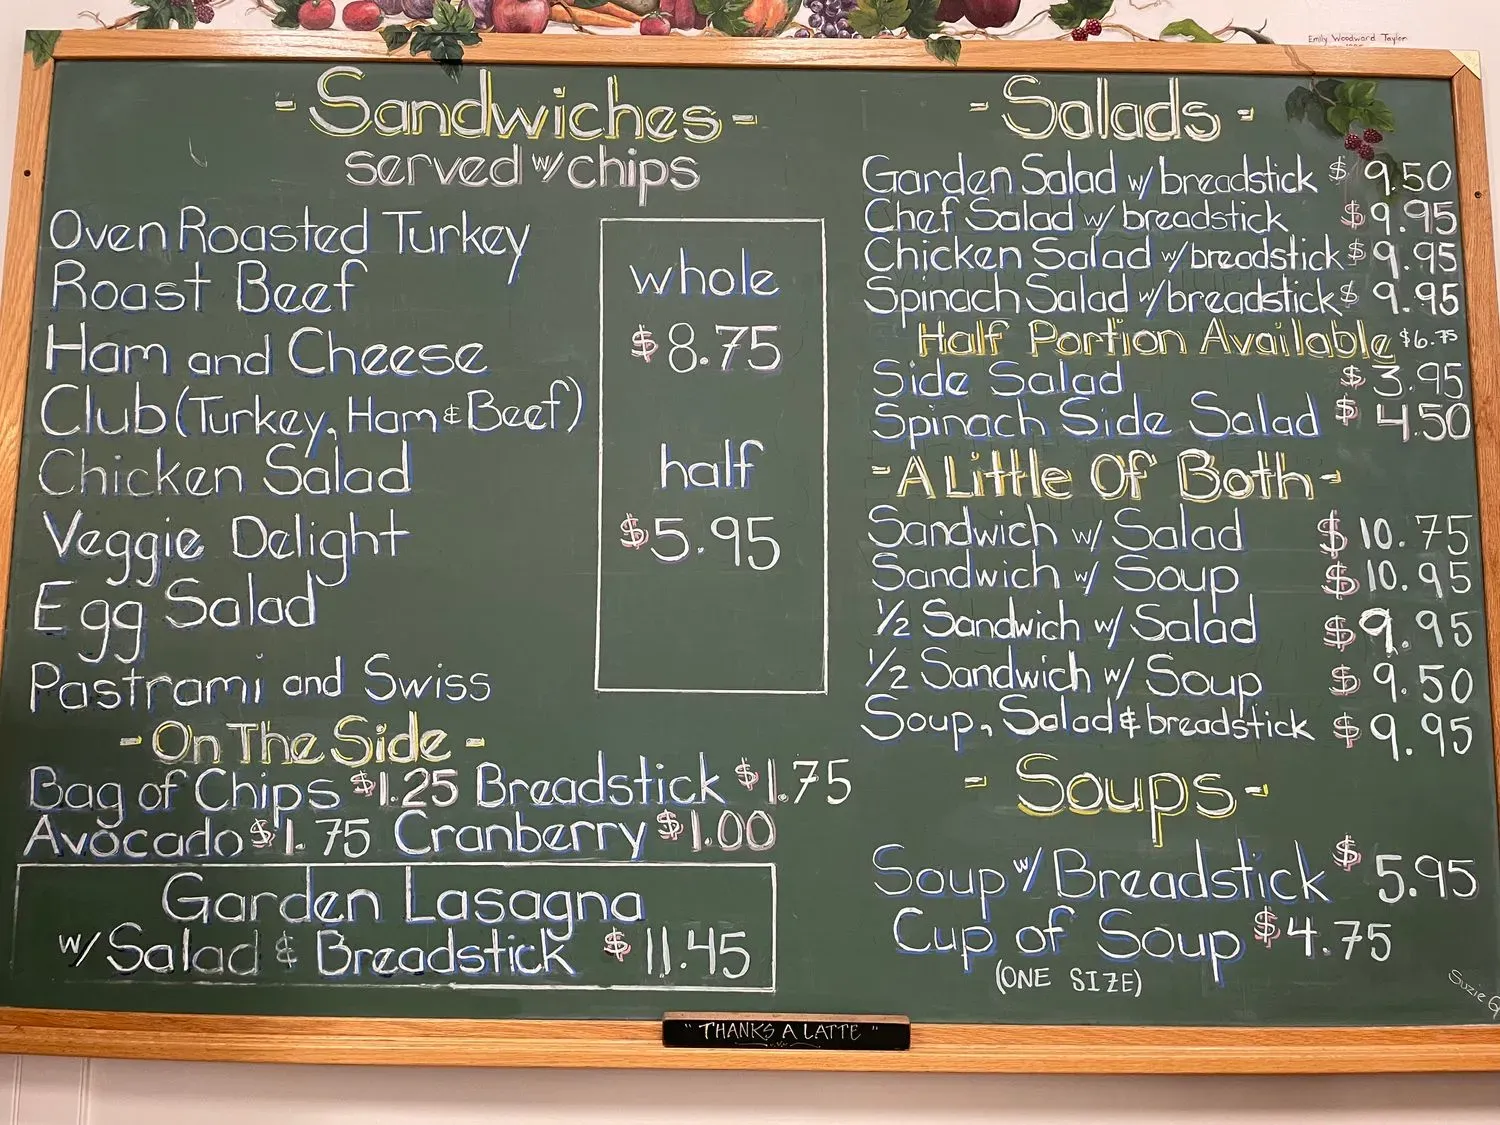 Emily Woodward Taylor
- Sandwiches -
served w/ chips
Oven Roasted Turkey
Roast Beef
Ham and Cheese
Club (Turkey, Ham & Beef)
Chicken Salad
Veggie Delight
Egg Salad
Pastrami and Swiss
whole
$8.75
half
$5.95
- On The Side -
Bag of Chips $1.25 Breadstick $1.75
Avocado $1.75 Cranberry $1.00
Garden Lasagna
w/ Salad & Breadstick $11.45
- Salads -
Garden Salad w/ breadstick $9.50
Chef Salad w/ breadstick $9.95
Chicken Salad w/ breadstick $9.95
Spinach Salad w/ breadstick $9.95
Half Portion Available $6.75
Side Salad $3.95
Spinach Side Salad $4.50
- A Little Of Both -
Sandwich w/ Salad $10.75
Sandwich w/ Soup $10.95
1/2 Sandwich w/ Salad $9.95
1/2 Sandwich w/ Soup $9.50
Soup, Salad & breadstick $9.95
- Soups -
Soup w/ Breadstick $5.95
Cup of Soup $4.75
(ONE SIZE)
Suzie G
"THANKS A LATTE"